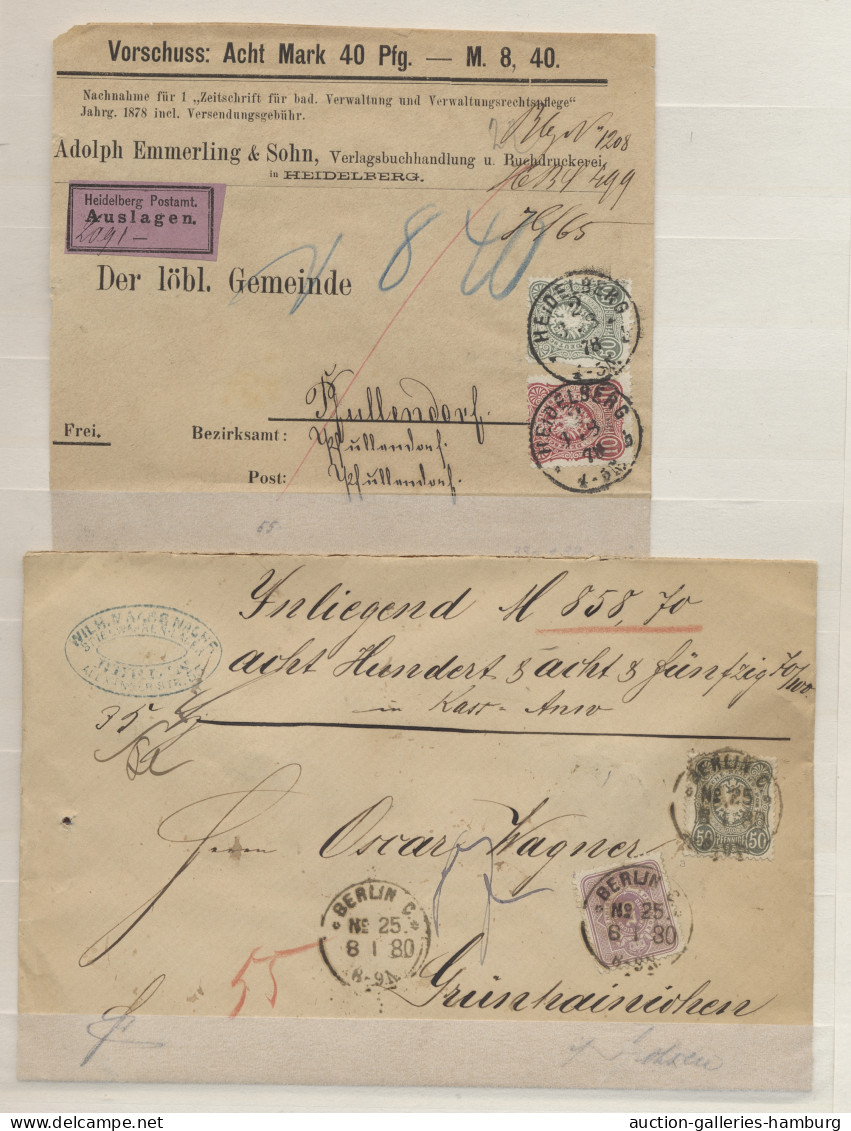 Vorschuss: Acht Mark 40 Pfg. — M. 8, 40.
Nachnahme für 1 „Zeitschrift für bad. Verwaltung und Verwaltungsrechtspflege"
Jahrg. 1878 incl. Versendungsgebühr.
1208
Adolph Emmerling & Sohn, Verlagsbuchhandlung u. Buchdruckerei,
in HEIDELBERG.
499
Heidelberg Postamt.
Auslagen.
2091-
65
8 40
Der löbl. Gemeinde
HEIDELBERG
78
50
HEIDELBERG
78
10
Pfullendorf.
Frei.
Bezirksamt: Pfullendorf.
Post: Pfullendorf.
55
Inliegend M 858,70
acht Hundert & acht & fünfzig 70/100.
in Kass-Anw
WILH.
BERLIN
35
BERLIN C.
No 25
50 PFENNIG 50
Herrn Oscar Wagner
BERLIN C.
No 25.
8 1 80
8-9N.
BERLIN C.
No 25.
8 1 80
8-9N.
55
Grünhainichen
i/ Sachsen
auction-galleries-hamburg